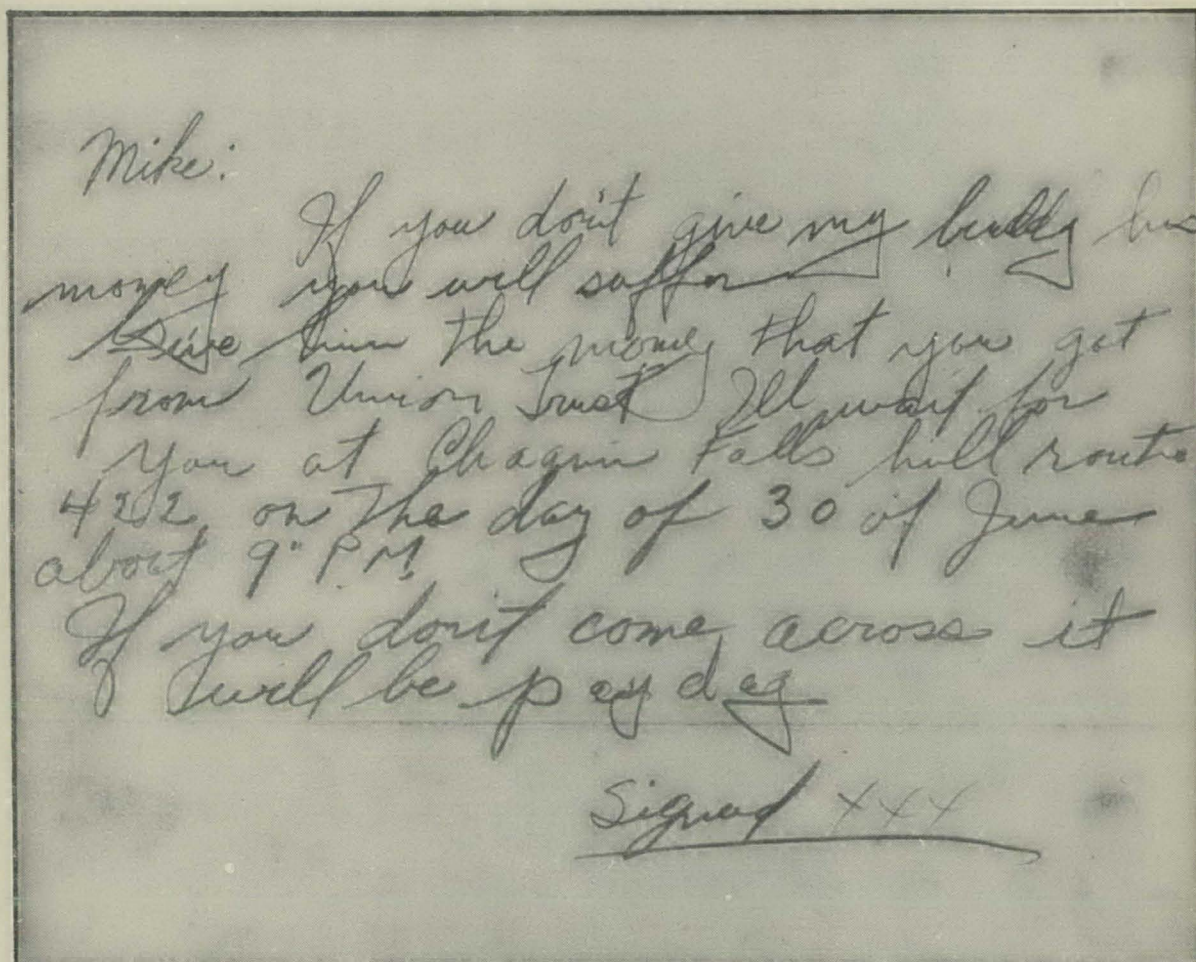 Mike:
If you don't give my buddy his
money you will suffer
Give him the money that you got
from Union Trust I'll wait for
you at Chagrin Falls hill route
422 on the day of 30 of June
about 9" P.M.
If you don't come across it
will be pay day
Signed XXX